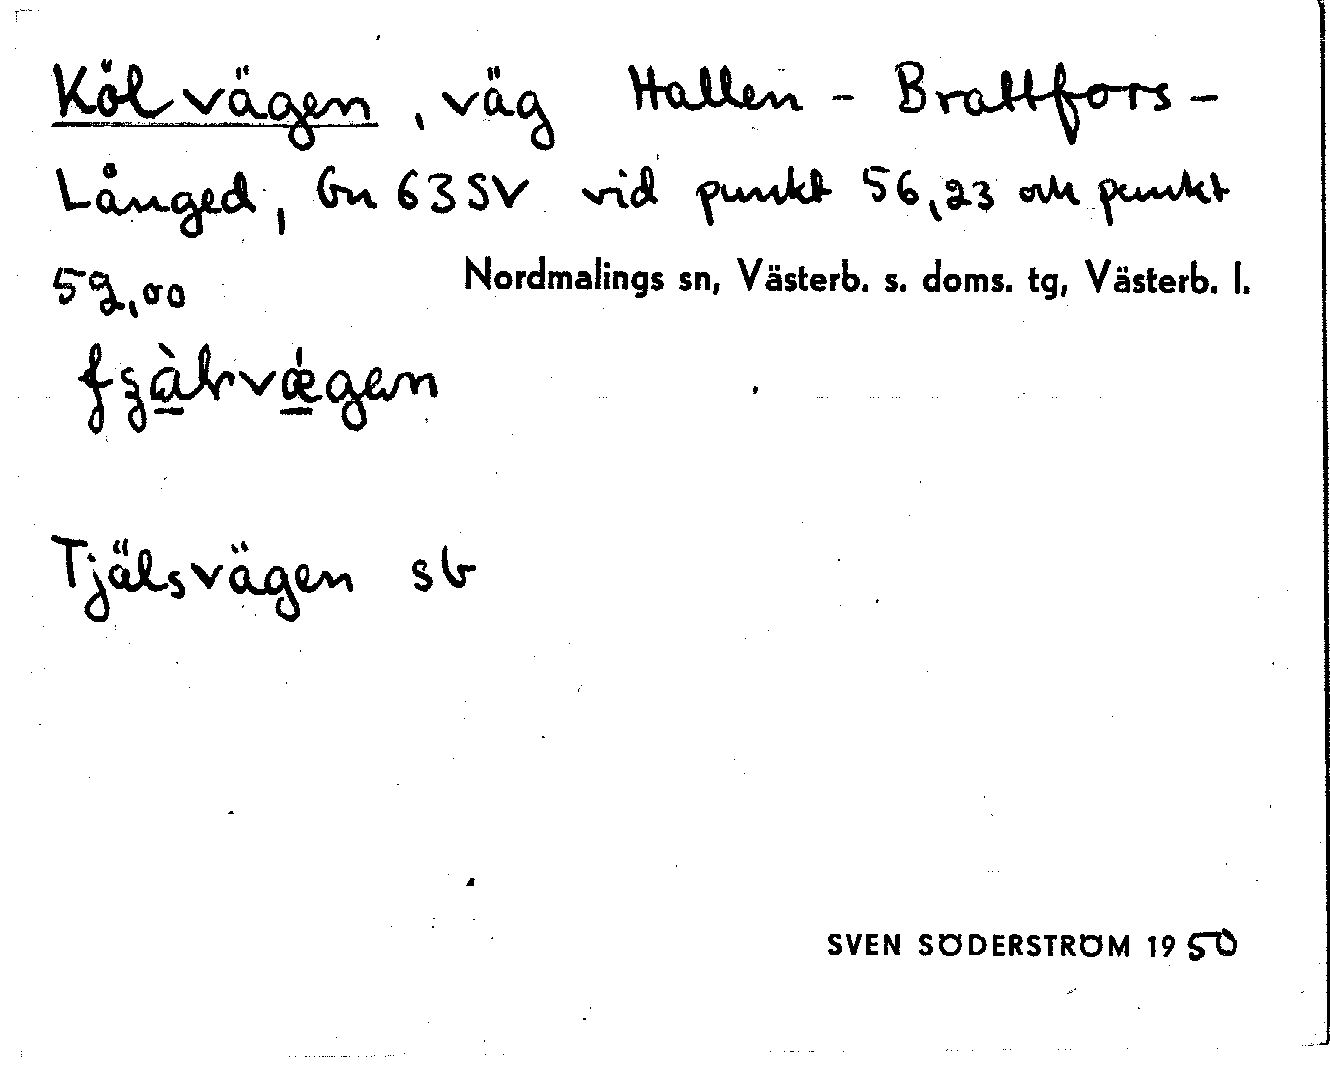 Kölvägen, väg Hallen - Brattfors -
Långed, Gn 63 SV vid punkt 56,23 och punkt
59,00
Nordmalings sn, Västerb. s. doms. tg, Västerb. l.
Tjälsvägen sb
SVEN SÖDERSTRÖM 1950